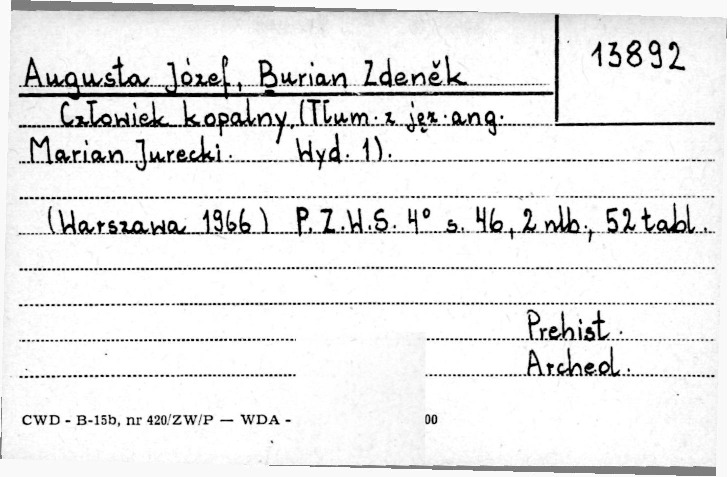 13892
Augusta Józef, Burian Zdeněk
Człowiek kopalny. (Tłum. z jęz. ang.
Marian Jurecki. Wyd. 1).
(Warszawa 1966) P.Z.W.S. 4° s. 46, 2 nlb., 52 tabl.
Prehist.
Archeol.
CWD - B-15b, nr 420/ZW/P — WDA - 00